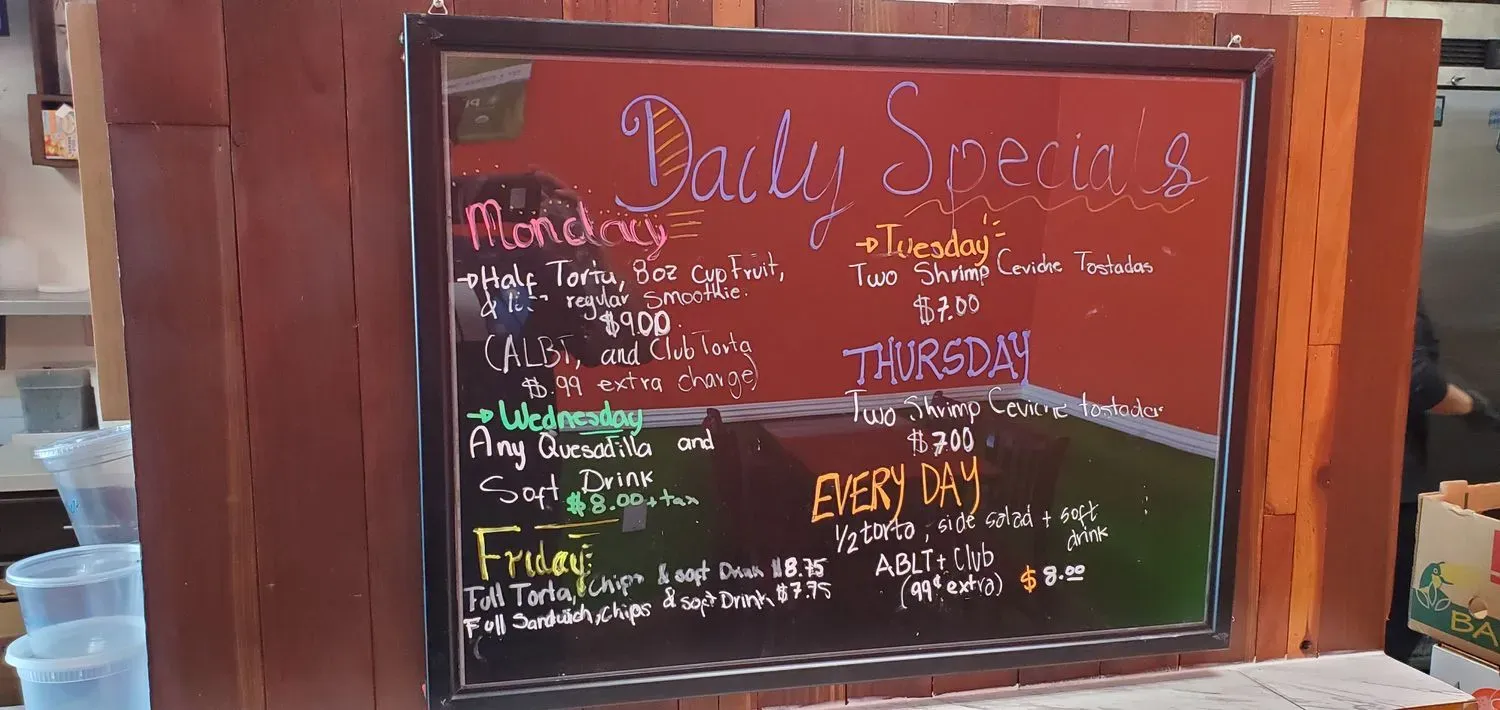 Daily Specials
Monday
→Half Torta, 8oz cup Fruit,
& regular Smoothie.
$9.00
(ALBT, and Club Torta
$.99 extra charge)
→Wednesday
Any Quesadilla and
Soft Drink
$8.00+tax
Friday:
Full Torta, Chips & soft Drink $8.75
Full Sandwich, Chips & soft Drink $7.75
→Tuesday
Two Shrimp Ceviche Tostadas
$7.00
THURSDAY
Two Shrimp Ceviche tostadas
$7.00
EVERY DAY
1/2 torta, side salad + soft
drink
ABLT + Club
(99¢ extra) $8.00
BA